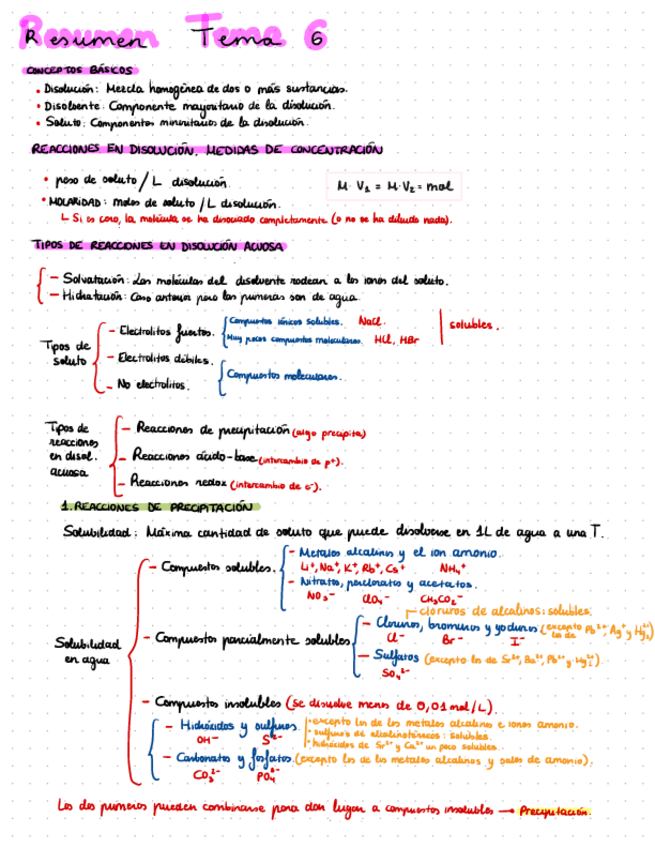 Resumen Tema 6
CONCEPTOS BÁSICOS
• Disolución: Mezcla homogénea de dos o más sustancias.
• Disolvente: Componente mayoritario de la disolución.
• Soluto: Componentes minoritarios de la disolución.
REACCIONES EN DISOLUCIÓN. MEDIDAS DE CONCENTRACIÓN
• peso de soluto / L disolución.
M·V₁ = M·V₂ = mol
• MOLARIDAD: moles de soluto / L disolución.
↳ Si es cero, la molécula se ha disociado completamente (o no se ha diluido nada).
TIPOS DE REACCIONES EN DISOLUCIÓN ACUOSA
- Solvatación: Las moléculas del disolvente rodean a los iones del soluto.
- Hidratación: Caso anterior pero las primeras son de agua.
Tipos de soluto
- Electrolitos fuertes.
Compuestos iónicos solubles. NaCl.
Muy pocos compuestos moleculares. HCl, HBr
solubles.
- Electrolitos débiles.
- No electrolitos.
Compuestos moleculares.
Tipos de reacciones en disol. acuosa
- Reacciones de precipitación (algo precipita)
- Reacciones ácido-base (intercambio de p⁺).
- Reacciones redox (intercambio de e⁻).
1. REACCIONES DE PRECIPITACIÓN
Solubilidad: Máxima cantidad de soluto que puede disolverse en 1L de agua a una T.
Solubilidad en agua
- Compuestos solubles.
- Metales alcalinos y el ion amonio.
Li⁺, Na⁺, K⁺, Rb⁺, Cs⁺ NH₄⁺
- Nitratos, percloratos y acetatos.
NO₃⁻ ClO₄⁻ CH₃CO₂⁻
cloruros de alcalinos: solubles.
- Compuestos parcialmente solubles
- Cloruros, bromuros y yoduros (excepto los de Pb²⁺, Ag⁺ y Hg₂)
Cl⁻ Br⁻ I⁻
- Sulfatos (excepto los de Sr²⁺, Ba²⁺, Pb²⁺ y Hg₂²⁺)
SO₄²⁻
- Compuestos insolubles (se disuelve menos de 0,01 mol/L).
- Hidróxidos y sulfuros.
OH⁻ S²⁻
• excepto los de los metales alcalino e iones amonio.
• sulfuros de alcalinotérreos: solubles.
• hidróxidos de Sr²⁺ y Ca²⁺ un poco solubles.
- Carbonatos y fosfatos. (excepto los de los metales alcalinos y sales de amonio).
CO₃²⁻ PO₄³⁻
Los dos primeros pueden combinarse para dar lugar a compuestos insolubles → Precipitación.